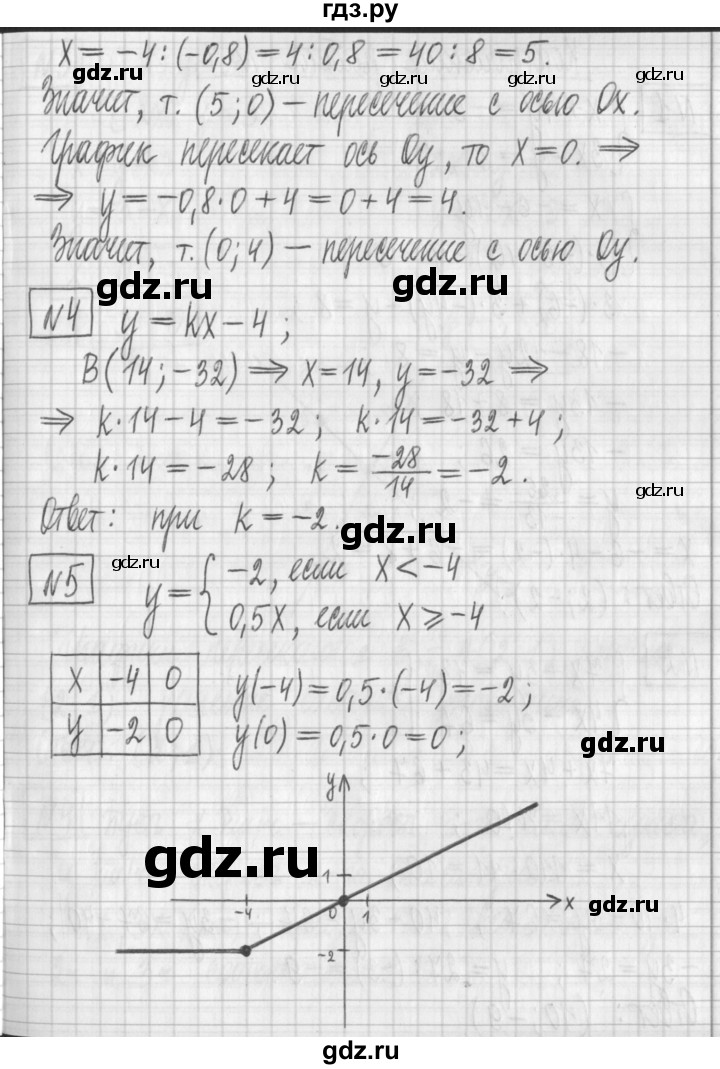 гдз.ру
X = -4 : (-0,8) = 4 : 0,8 = 40 : 8 = 5.
gdz.ru gdz.ru gdz.ru gdz.ru
Значит, т. (5; 0) — пересечение с осью Ox.
График пересекает ось Oy, то X = 0. ⇒
⇒ y = -0,8·0 + 4 = 0 + 4 = 4.
gdz.ru gdz.ru gdz.ru
Значит, т. (0; 4) — пересечение с осью Oy.
gdz.ru gdz.ru
№4 y = kx - 4;
B(14; -32) ⇒ X = 14, y = -32 ⇒
⇒ k·14 - 4 = -32; k·14 = -32 + 4;
k·14 = -28; k = -28/14 = -2.
gdz.ru
Ответ: при k = -2.
gdz.ru
№5 y = { -2, если X < -4
0,5X, если X ⩾ -4
gdz.ru
X -4 0
y -2 0
y(-4) = 0,5·(-4) = -2;
y(0) = 0,5·0 = 0;
gdz.ru
y
gdz.ru
1
-4 0 1 x
gdz.ru
-2
gdz.ru